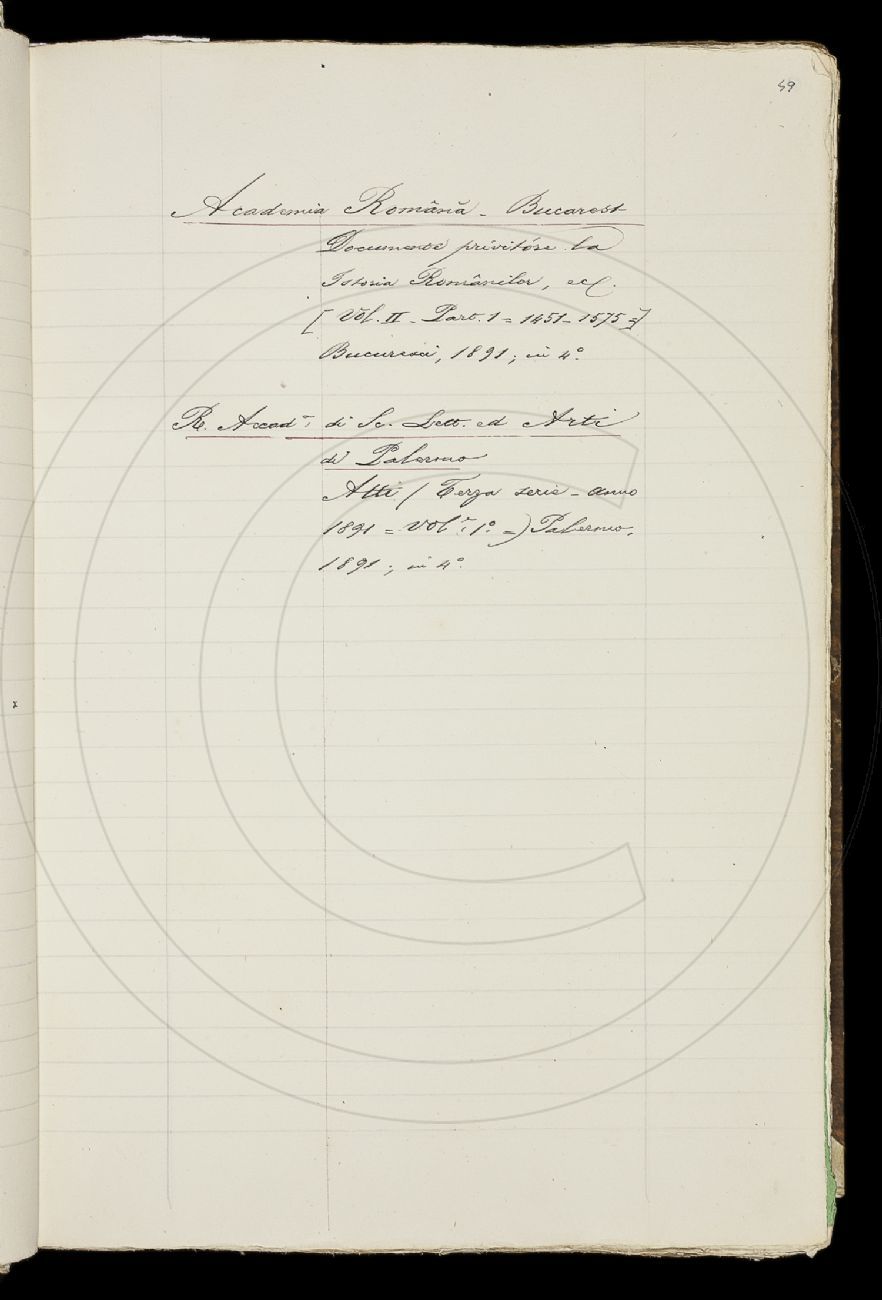 49
Academia Română - Bucarest
Documente privitóre la
Istoria Românilor, ecc.
[Vol. II - Part. 1 = 1451-1575 =]
Bucuresci, 1891; in 4°.
R. Accad.ª di Sc. Lett. ed Arti
di Palermo
Atti (Terza serie - anno
1891 = Vol.ᵉ 1° =) Palermo,
1891; in 4°.